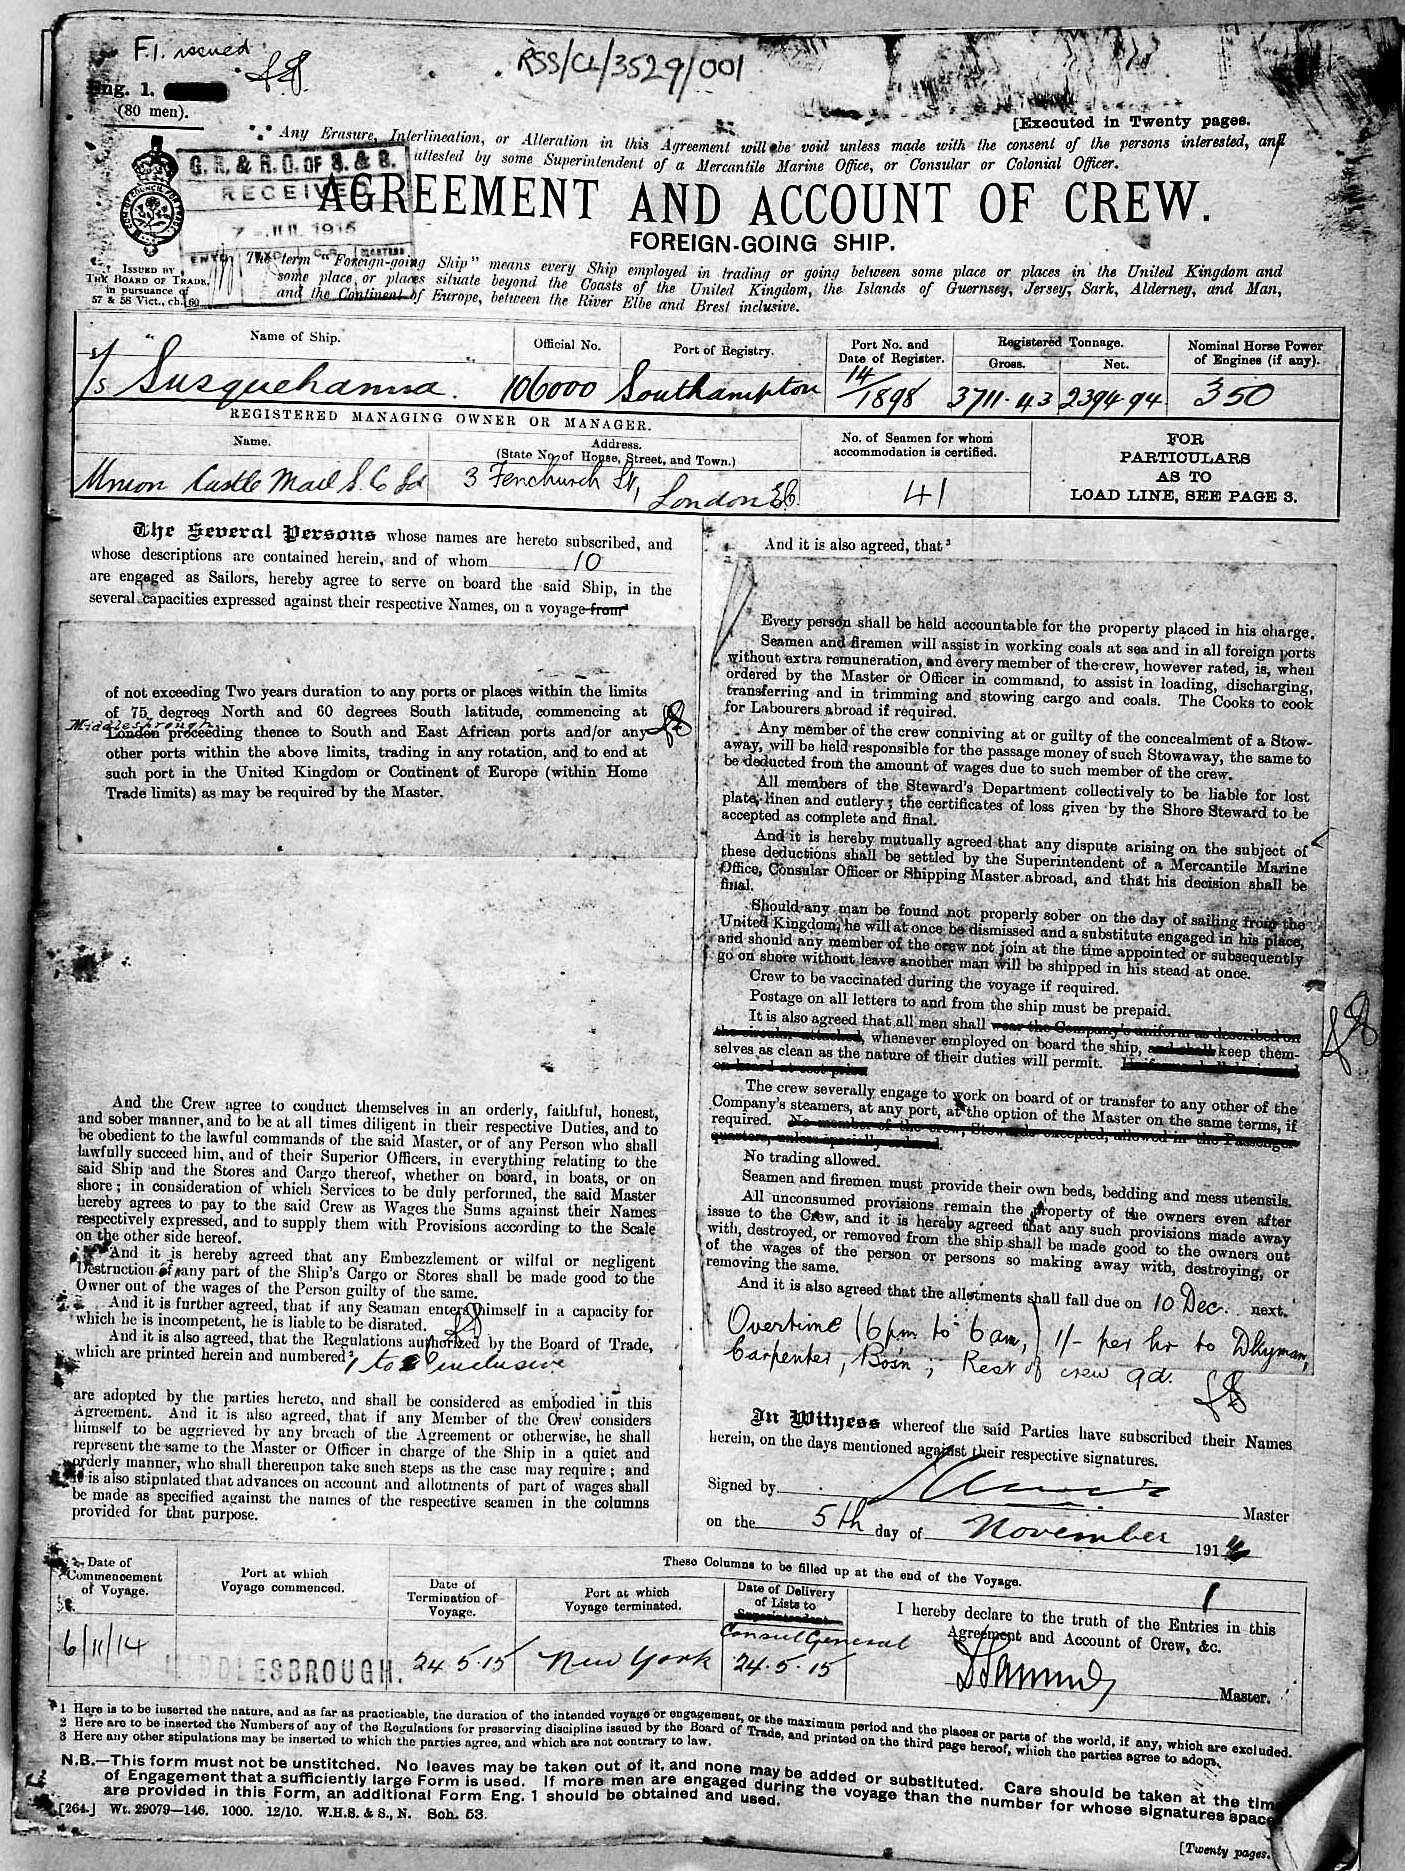 F.I. issued
RSS/CL/3529/001
Eng. 1.
(80 men).
[Executed in Twenty pages.
Any Erasure, Interlineation, or Alteration in this Agreement will be void unless made with the consent of the persons interested, and
attested by some Superintendent of a Mercantile Marine Office, or Consular or Colonial Officer.
G. R. & R. O. OF S. & S.
RECEIVED
7 - JUL 1915
AGREEMENT AND ACCOUNT OF CREW.
FOREIGN-GOING SHIP.
ISSUED BY
THE BOARD OF TRADE,
in pursuance of
57 & 58 Vict., ch. 60
The term "Foreign-going Ship" means every Ship employed in trading or going between some place or places in the United Kingdom and
some place or places situate beyond the Coasts of the United Kingdom, the Islands of Guernsey, Jersey, Sark, Alderney, and Man,
and the Continent of Europe, between the River Elbe and Brest inclusive.
Name of Ship.
Official No.
Port of Registry.
Port No. and
Date of Register.
Registered Tonnage.
Gross.
Net.
Nominal Horse Power
of Engines (if any).
s/s "Susquehanna"
106000
Southampton
14/1898
3711.43
2394.94
350
REGISTERED MANAGING OWNER OR MANAGER.
Name.
Address.
(State No. of House, Street, and Town.)
No. of Seamen for whom
accommodation is certified.
FOR
PARTICULARS
AS TO
LOAD LINE, SEE PAGE 3.
Union Castle Mail S. Co Ld
3 Fenchurch St, London E.C.
41
The Several Persons whose names are hereto subscribed, and
whose descriptions are contained herein, and of whom 10
are engaged as Sailors, hereby agree to serve on board the said Ship, in the
several capacities expressed against their respective Names, on a voyage from¹
of not exceeding Two years duration to any ports or places within the limits
of 75 degrees North and 60 degrees South latitude, commencing at
Middlesbrough
London proceeding thence to South and East African ports and/or any
other ports within the above limits, trading in any rotation, and to end at
such port in the United Kingdom or Continent of Europe (within Home
Trade limits) as may be required by the Master.
And the Crew agree to conduct themselves in an orderly, faithful, honest,
and sober manner, and to be at all times diligent in their respective Duties, and to
be obedient to the lawful commands of the said Master, or of any Person who shall
lawfully succeed him, and of their Superior Officers, in everything relating to the
said Ship and the Stores and Cargo thereof, whether on board, in boats, or on
shore; in consideration of which Services to be duly performed, the said Master
hereby agrees to pay to the said Crew as Wages the Sums against their Names
respectively expressed, and to supply them with Provisions according to the Scale
on the other side hereof.
And it is hereby agreed that any Embezzlement or wilful or negligent
Destruction of any part of the Ship's Cargo or Stores shall be made good to the
Owner out of the wages of the Person guilty of the same.
And it is further agreed, that if any Seaman enters himself in a capacity for
which he is incompetent, he is liable to be disrated.
And it is also agreed, that the Regulations authorized by the Board of Trade,
which are printed herein and numbered² 1 to 8 inclusive
are adopted by the parties hereto, and shall be considered as embodied in this
Agreement. And it is also agreed, that if any Member of the Crew considers
himself to be aggrieved by any breach of the Agreement or otherwise, he shall
represent the same to the Master or Officer in charge of the Ship in a quiet and
orderly manner, who shall thereupon take such steps as the case may require; and
it is also stipulated that advances on account and allotments of part of wages shall
be made as specified against the names of the respective seamen in the columns
provided for that purpose.
And it is also agreed, that³
Every person shall be held accountable for the property placed in his charge.
Seamen and firemen will assist in working coals at sea and in all foreign ports
without extra remuneration, and every member of the crew, however rated, is, when
ordered by the Master or Officer in command, to assist in loading, discharging,
transferring and in trimming and stowing cargo and coals. The Cooks to cook
for Labourers abroad if required.
Any member of the crew conniving at or guilty of the concealment of a Stow-
away, will be held responsible for the passage money of such Stowaway, the same to
be deducted from the amount of wages due to such member of the crew.
All members of the Steward's Department collectively to be liable for lost
plate, linen and cutlery; the certificates of loss given by the Shore Steward to be
accepted as complete and final.
And it is hereby mutually agreed that any dispute arising on the subject of
these deductions shall be settled by the Superintendent of a Mercantile Marine
Office, Consular Officer or Shipping Master abroad, and that his decision shall be
final.
Should any man be found not properly sober on the day of sailing from the
United Kingdom, he will at once be dismissed and a substitute engaged in his place,
and should any member of the crew not join at the time appointed or subsequently
go on shore without leave another man will be shipped in his stead at once.
Crew to be vaccinated during the voyage if required.
Postage on all letters to and from the ship must be prepaid.
It is also agreed that all men shall wear the Company's uniform as described on
the circular attached, whenever employed on board the ship, and shall keep them-
selves as clean as the nature of their duties will permit.
on board at cost price
The crew severally engage to work on board of or transfer to any other of the
Company's steamers, at any port, at the option of the Master on the same terms, if
required. No member of the crew, Stewards excepted, allowed in the Passenger
quarters, unless specially ordered.
No trading allowed.
Seamen and firemen must provide their own beds, bedding and mess utensils.
All unconsumed provisions remain the property of the owners even after
issue to the Crew, and it is hereby agreed that any such provisions made away
with, destroyed, or removed from the ship shall be made good to the owners out
of the wages of the person or persons so making away with, destroying, or
removing the same.
And it is also agreed that the allotments shall fall due on 10 Dec. next.
Overtime (6pm to 6am,) 1/- per hr to Dkyman,
Carpenter, Bosn; Rest of crew 9d.
In Witness whereof the said Parties have subscribed their Names
herein, on the days mentioned against their respective signatures.
Signed by Master
on the 5th day of November 191
These Columns to be filled up at the end of the Voyage.
Date of
Commencement
of Voyage.
Port at which
Voyage commenced.
Date of
Termination of
Voyage.
Port at which
Voyage terminated.
Date of Delivery
of Lists to
Superintendent
Consul General
I hereby declare to the truth of the Entries in this
Agreement and Account of Crew, &c.
6/11/14
MIDDLESBROUGH.
24.5.15
New York
24.5.15
Master.
1 Here is to be inserted the nature, and as far as practicable, the duration of the intended voyage or engagement, or the maximum period and the places or parts of the world, if any, which are excluded.
2 Here are to be inserted the Numbers of any of the Regulations for preserving discipline issued by the Board of Trade, and printed on the third page hereof, which the parties agree to adopt.
3 Here any other stipulations may be inserted to which the parties agree, and which are not contrary to law.
N.B.—This form must not be unstitched. No leaves may be taken out of it, and none may be added or substituted. Care should be taken at the time
of Engagement that a sufficiently large Form is used. If more men are engaged during the voyage than the number for whose signatures space
are provided in this Form, an additional Form Eng. 1 should be obtained and used.
[264.] Wt. 29079—146. 1000. 12/10. W.H.S. & S., N. Sch. 53.
[Twenty pages.